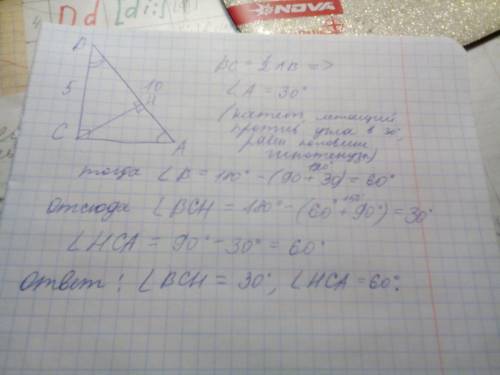 NOVA
B
5
10
H
C
A
BC = ½ AB =>
∠A = 30°
(катет, лежащий
против угла в 30°,
равен половине
гипотенузы)
тогда ∠B = 180° - (90 + 30) = 60°
120°
Отсюда ∠BCH = 180° - (60° + 90°) = 30°
150°
∠HCA = 90° - 30° = 60°
Ответ: ∠BCH = 30°, ∠HCA = 60°.